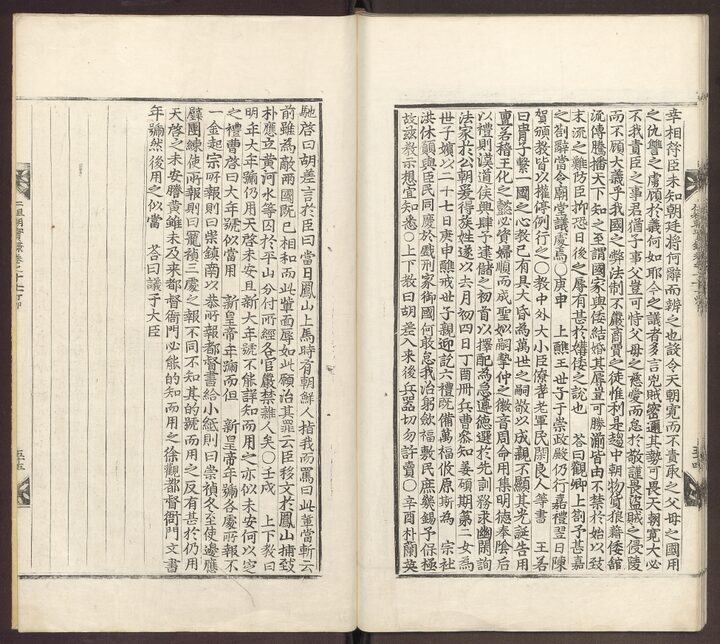 宰相符臣未知朝廷將何辭而辨之也設令天朝寬而不責取之父母之國用
之仇讐之虜顧於義何如耶今之議者多言兇賊密邇其勢可畏天朝寬大必
不我責臣之事君猶子事父豈可恃父母之慈愛而怠於敬謹畏盜賊之侵陵
而不顧大義乎我國之弊法制不嚴商賈之徒惟利是趨中朝物貨狼藉倭館
流傳騰播天下知之至謂國家與倭結婚其辱豈可勝湔皆由不禁於始以致
末流之難防臣抑恐日後之辱有甚於媾倭之說也 答曰觀卿上箚予甚嘉
之箚辭當令廟堂議處焉○庚申 上醮王世子于崇政殿仍行嘉禮翌日陳
賀頒敎皆以權停例行之○敎中外大小臣僚耆老軍民閑良人等書 王若
曰冑子繫一國之心敎已有具大昏爲萬世之嗣敬以成親不顯其光誕告用
亶若稽王化之懿必資婦順而成聖姒嗣摯仲之徽音周命用集明德奉陰后
以禮則漢道俟興肆予建儲之初首以擇配爲急遵德選於先訓務求幽閑詢
法家於公朝爰得族姓遂以六月初四日丁酉冊兵曹參知姜碩期第二女爲
世子嬪以二十七日庚申醮戒世子親迎訖六禮旣備萬福攸原斯爲 宗社
洪休顧與臣民同慶於戲刑家御國何敢忘我治躬斂福敷民庶幾錫予保極
故玆敎示想宜知悉○上下敎曰胡差入來後兵器切勿許賣○辛酉朴蘭英
馳啓曰胡差言於臣曰當日鳳山上馬時有朝鮮人指我而罵曰此輩當斬云
前雖爲敵兩國旣已相和而此輩面辱如此願治其罪云臣移文於鳳山捕致
朴應立黃河水等囚於平山分付所經各官嚴禁雜人矣○壬戌 上下敎曰
明年大年號仍用天啓未安且新大年號不能詳知而用之亦似未安何以定
之禮曹啓曰大年號似當用 新皇帝年號而但 新皇帝年號各處所報不
一金起宗所報則曰崇鎭南以恭所報都督書給小紙則曰崇禎冬至使邊應
璧團練使所報則曰寵禎三處之報不同不知其的號而用之反有甚於仍用
天啓之未安謄黃雖未及來都督衙門必能的知而用之徐觀都督衙門文書
年號然後用之似當 答曰議于大臣
五十四
仁祖朝實錄卷之十七
五十五